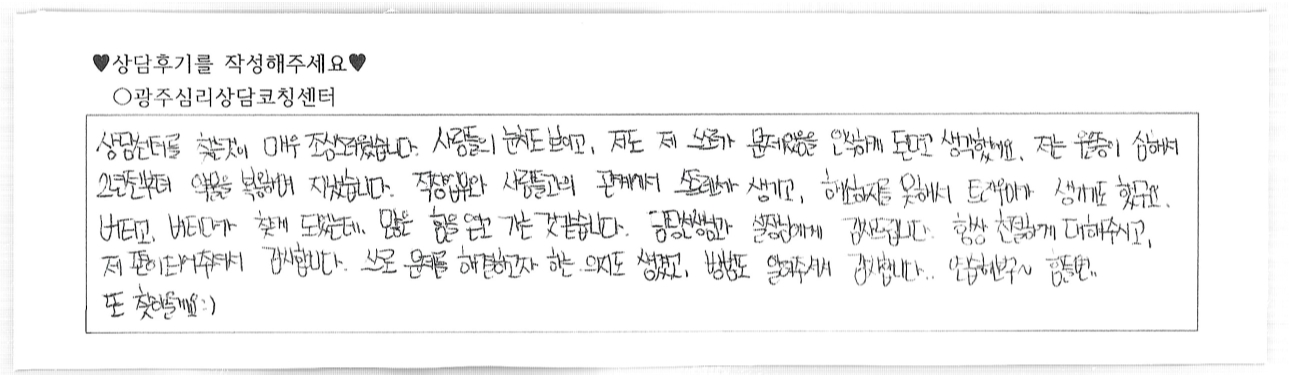 ♥상담후기를 작성해주세요♥
○광주심리상담코칭센터
상담센터를 찾는것이 매우 조심스러웠습니다. 사람들의 눈치도 보이고, 저도 제 스스로가 문제있음을 인식하게 된다고 생각했어요. 저는 우울증이 심해서
2년전부터 약물을 복용하며 지냈습니다. 직장업무와 사람들과의 관계에서 스트레스가 생기고, 해소하지를 못해서 트라우마가 생기기도 했구요.
버티고, 버티다가 찾게 되었는데, 많은 힘을 얻고 가는 것같습니다. 담당선생님과 실장님에게 감사드립니다. 항상 친절하게 대해주시고,
제 편이되어주셔서 감사합니다. 스스로 문제를 해결하고자 하는 의지도 생겼고, 방법도 알려주셔서 감사합니다.. 연습해보고~ 힘들면..
또 찾아올게요:)